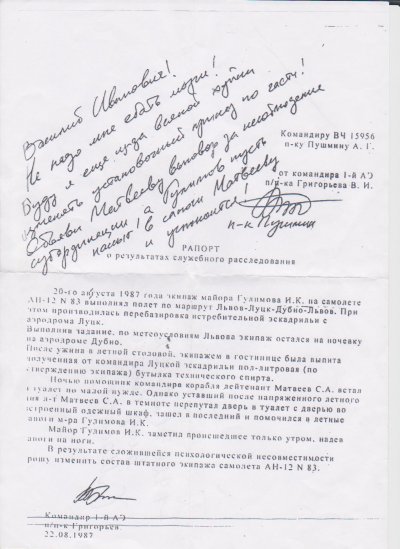 Василий Иванович!
Не надо мне ебать мозги!
Буду я еще из-за всякой хуйни
изменять установочный приказ по части!
Объяви Матвееву выговор за несоблюдение
субординации, а Гулимов пусть
нассыт в сапоги Матвееву
и успокоится!
п-к Пушмин
Командиру ВЧ 15956
п-ку Пушмину А. Г.
от командира 1-й АЭ
п/п-ка Григорьева В. И.
РАПОРТ
о результатах служебного расследования
20-го августа 1987 года экипаж майора Гулимова И.К. на самолете
АН-12 N 83 выполнял полет по маршрут Львов-Луцк-Дубно-Львов. При
этом производилась перебазировка истребительной эскадрильи с
аэродрома Луцк.
Выполнив задание, по метеоусловиям Львова экипаж остался на ночевку
на аэродроме Дубно.
После ужина в летной столовой, экипажем в гостинице была выпита
полученная от командира Луцкой эскадрильи пол-литровая (по
тверждению экипажа) бутылка технического спирта.
Ночью помощник командира корабля лейтенант Матвеев С.А. встал
в туалет по малой нужде. Однако уставший после напряженного летного
дня л-т Матвеев С.А. в темноте перепутал дверь в туалет с дверью во
встроенный одежный шкаф, зашел в последний и помочился в летные
сапоги м-ра Гулимова И.К.
Майор Гулимов И.К. заметил происшедшее только утром, надев
сапоги на ноги.
В результате сложившейся психологической несовместимости
прошу изменить состав штатного экипажа самолета АН-12 N 83.
Командир 1-й АЭ
п/п-к Григорьев.
22.08.1987